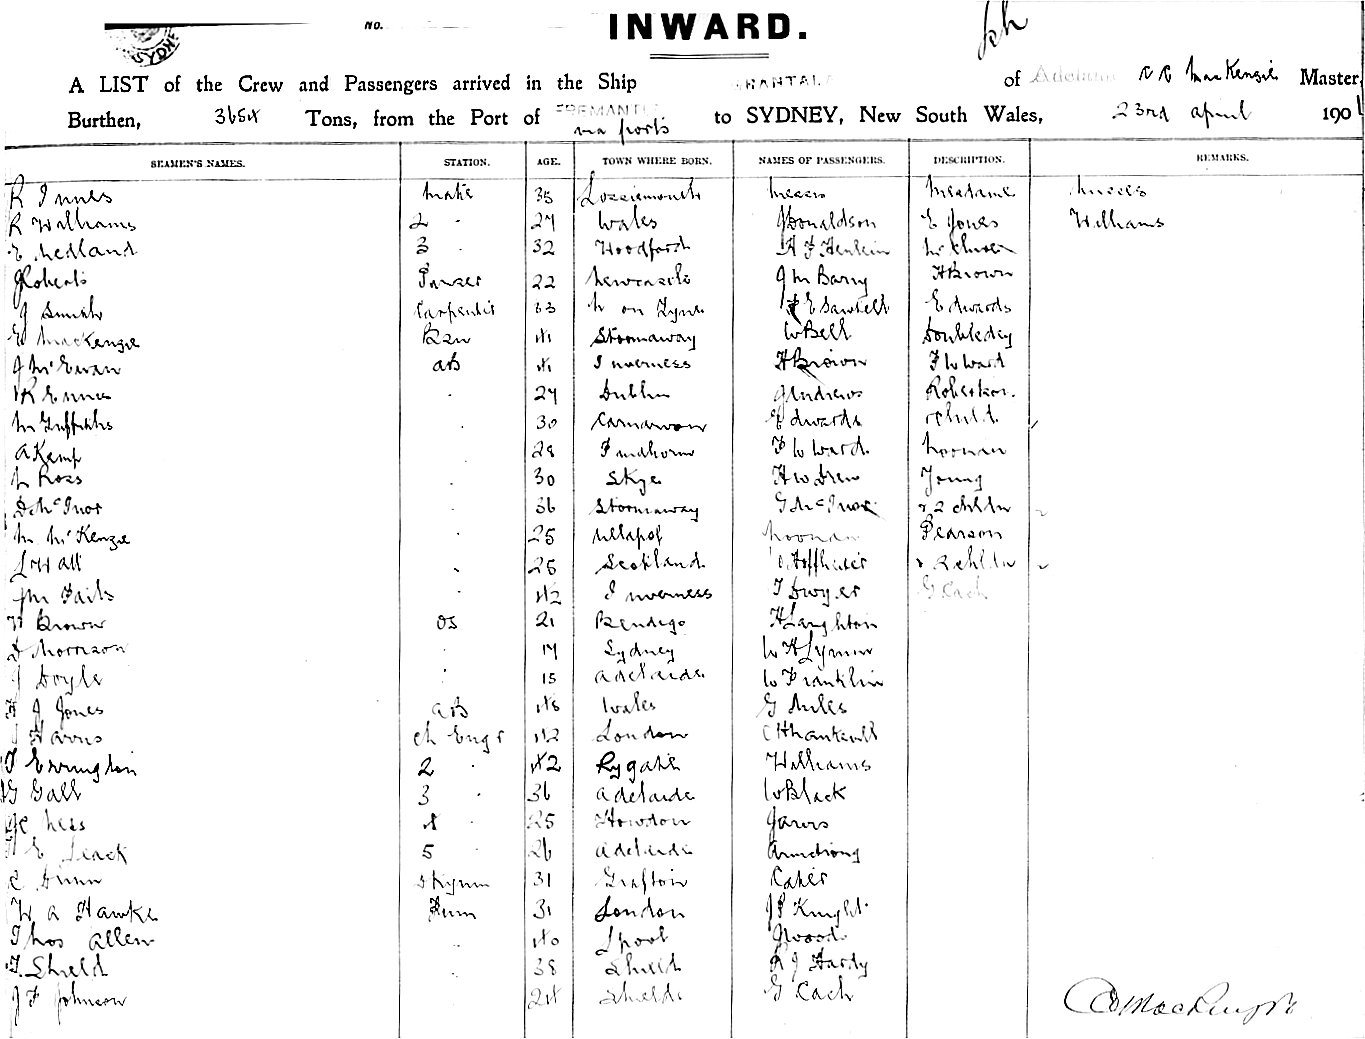 No. INWARD.
SYDNEY
A LIST of the Crew and Passengers arrived in the Ship GRANTALA of Adelaide MacKenzie Master,
Burthen, 3654 Tons, from the Port of FREMANTLE via ports to SYDNEY, New South Wales, 23rd April 190
SEAMEN'S NAMES. STATION. AGE. TOWN WHERE BORN. NAMES OF PASSENGERS. DESCRIPTION. REMARKS.
R Innes Mate 35 Lossiemouth Messrs Mesdame Misses
R Williams 2 " 27 Wales J Donaldson E Jones Williams
E Medland 3 " 32 Woodford
J Roberts Purser 22 Newcastle J M Barry H Brown
J Smith Carpenter 33 N on Tyne F E Sawtell Edwards
E MacKenzie 41 Stornaway W Bell Doubleday
J McEwan AB 41 Inverness H Brown F W Ward
" 27 Dublin J Andrews Robertson
M Griffiths " 30 Carnarvon Edwards child
A Kemp " 28 Findhorn F W Ward Noonan
Ross " 30 Skye H W Drew Young
D McIvor " 36 Stornaway G McIvor & 2 children 2
M McKenzie " 25 Ullapol Noonan Pearson
L Wall " 25 Scotland
" 42 Inverness T Dwyer G Cach
H Brown OS 21 Bendigo H Langhton
D Morrison " 17 Sydney
J Doyle " 15 Adelaide W Franklin
H J Jones AB 48 Wales G Miles
Harris Ch Engr 42 London
T Errington 2 " 42 Rygate Williams
G Gall 3 " 36 Adelaide W Black
Ness 4 " 25 Howdon Jarvis
E Leack 5 " 26 Adelaide Armstrong
Dunn 31 Grafton Cater
W A Hawke Firm 31 London J P Knight
Thos Allen " 40 Lpool J Woods
T. Shield " 38 Shield R J Hardy
J F Johnson " 24 Shields G Cach